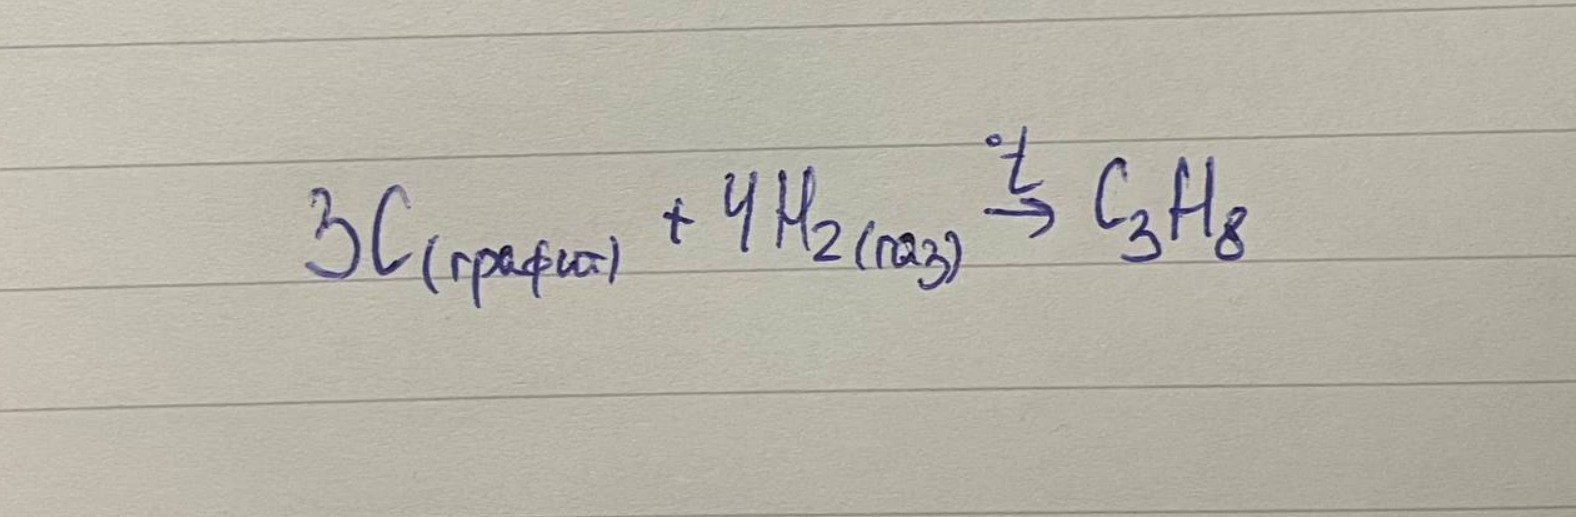 3C(графит) + 4H₂(газ) →^(°t) C₃H₈